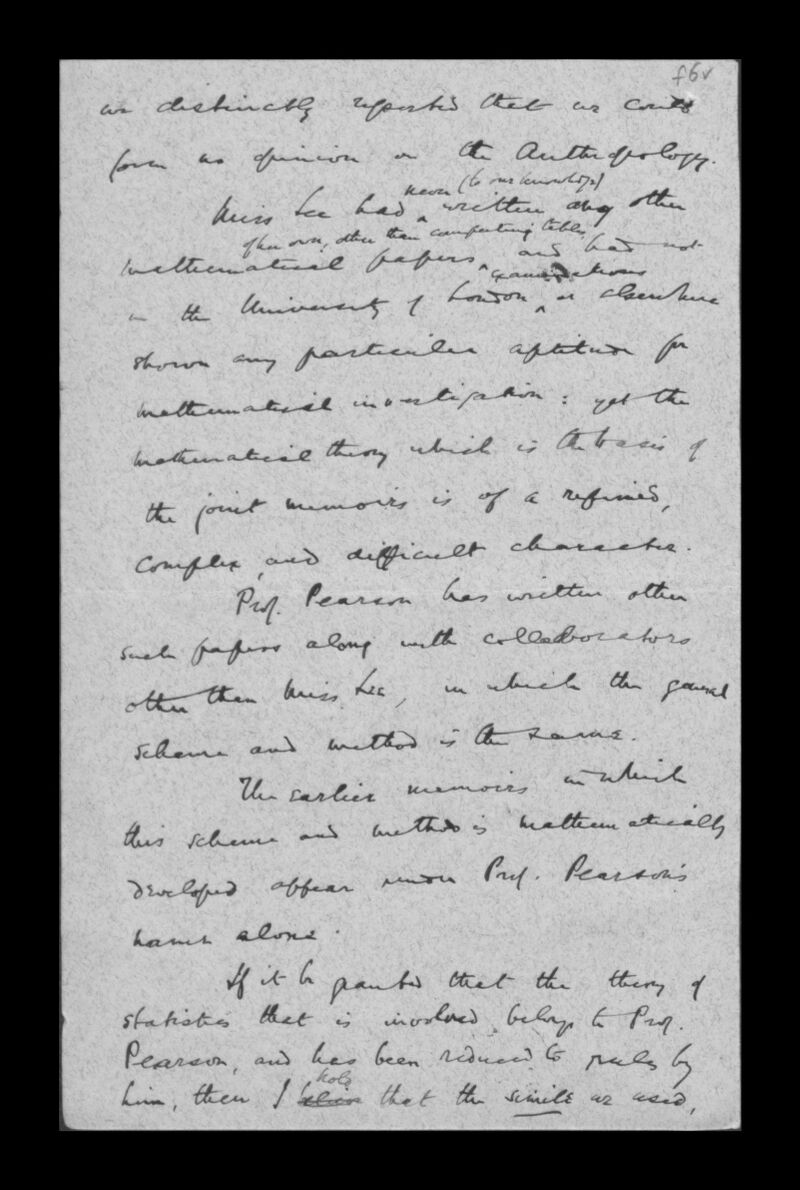 f6v
we distinctly reported that we could
form no opinion on the Anthropology.
never (to our knowledge)
Miss Lee had written any other
of her own, other than computing tables,
mathematical papers, and had not
examinations
in the University of London, or elsewhere
shown any particular aptitude for
mathematical investigation: yet the
mathematical theory which is the basis of
the joint memoirs is of a refined,
complex, and difficult character.
Prof. Pearson has written other
such papers along with collaborators
other than Miss Lee, in which the general
scheme and method is the same.
The earlier memoirs in which
this scheme and method is mathematically
developed appear under Prof. Pearson's
name alone.
If it be granted that the theory of
statistics that is involved belongs to Prof.
Pearson, and has been reduced to rules by
hold
him, then I believe that the simile we used,